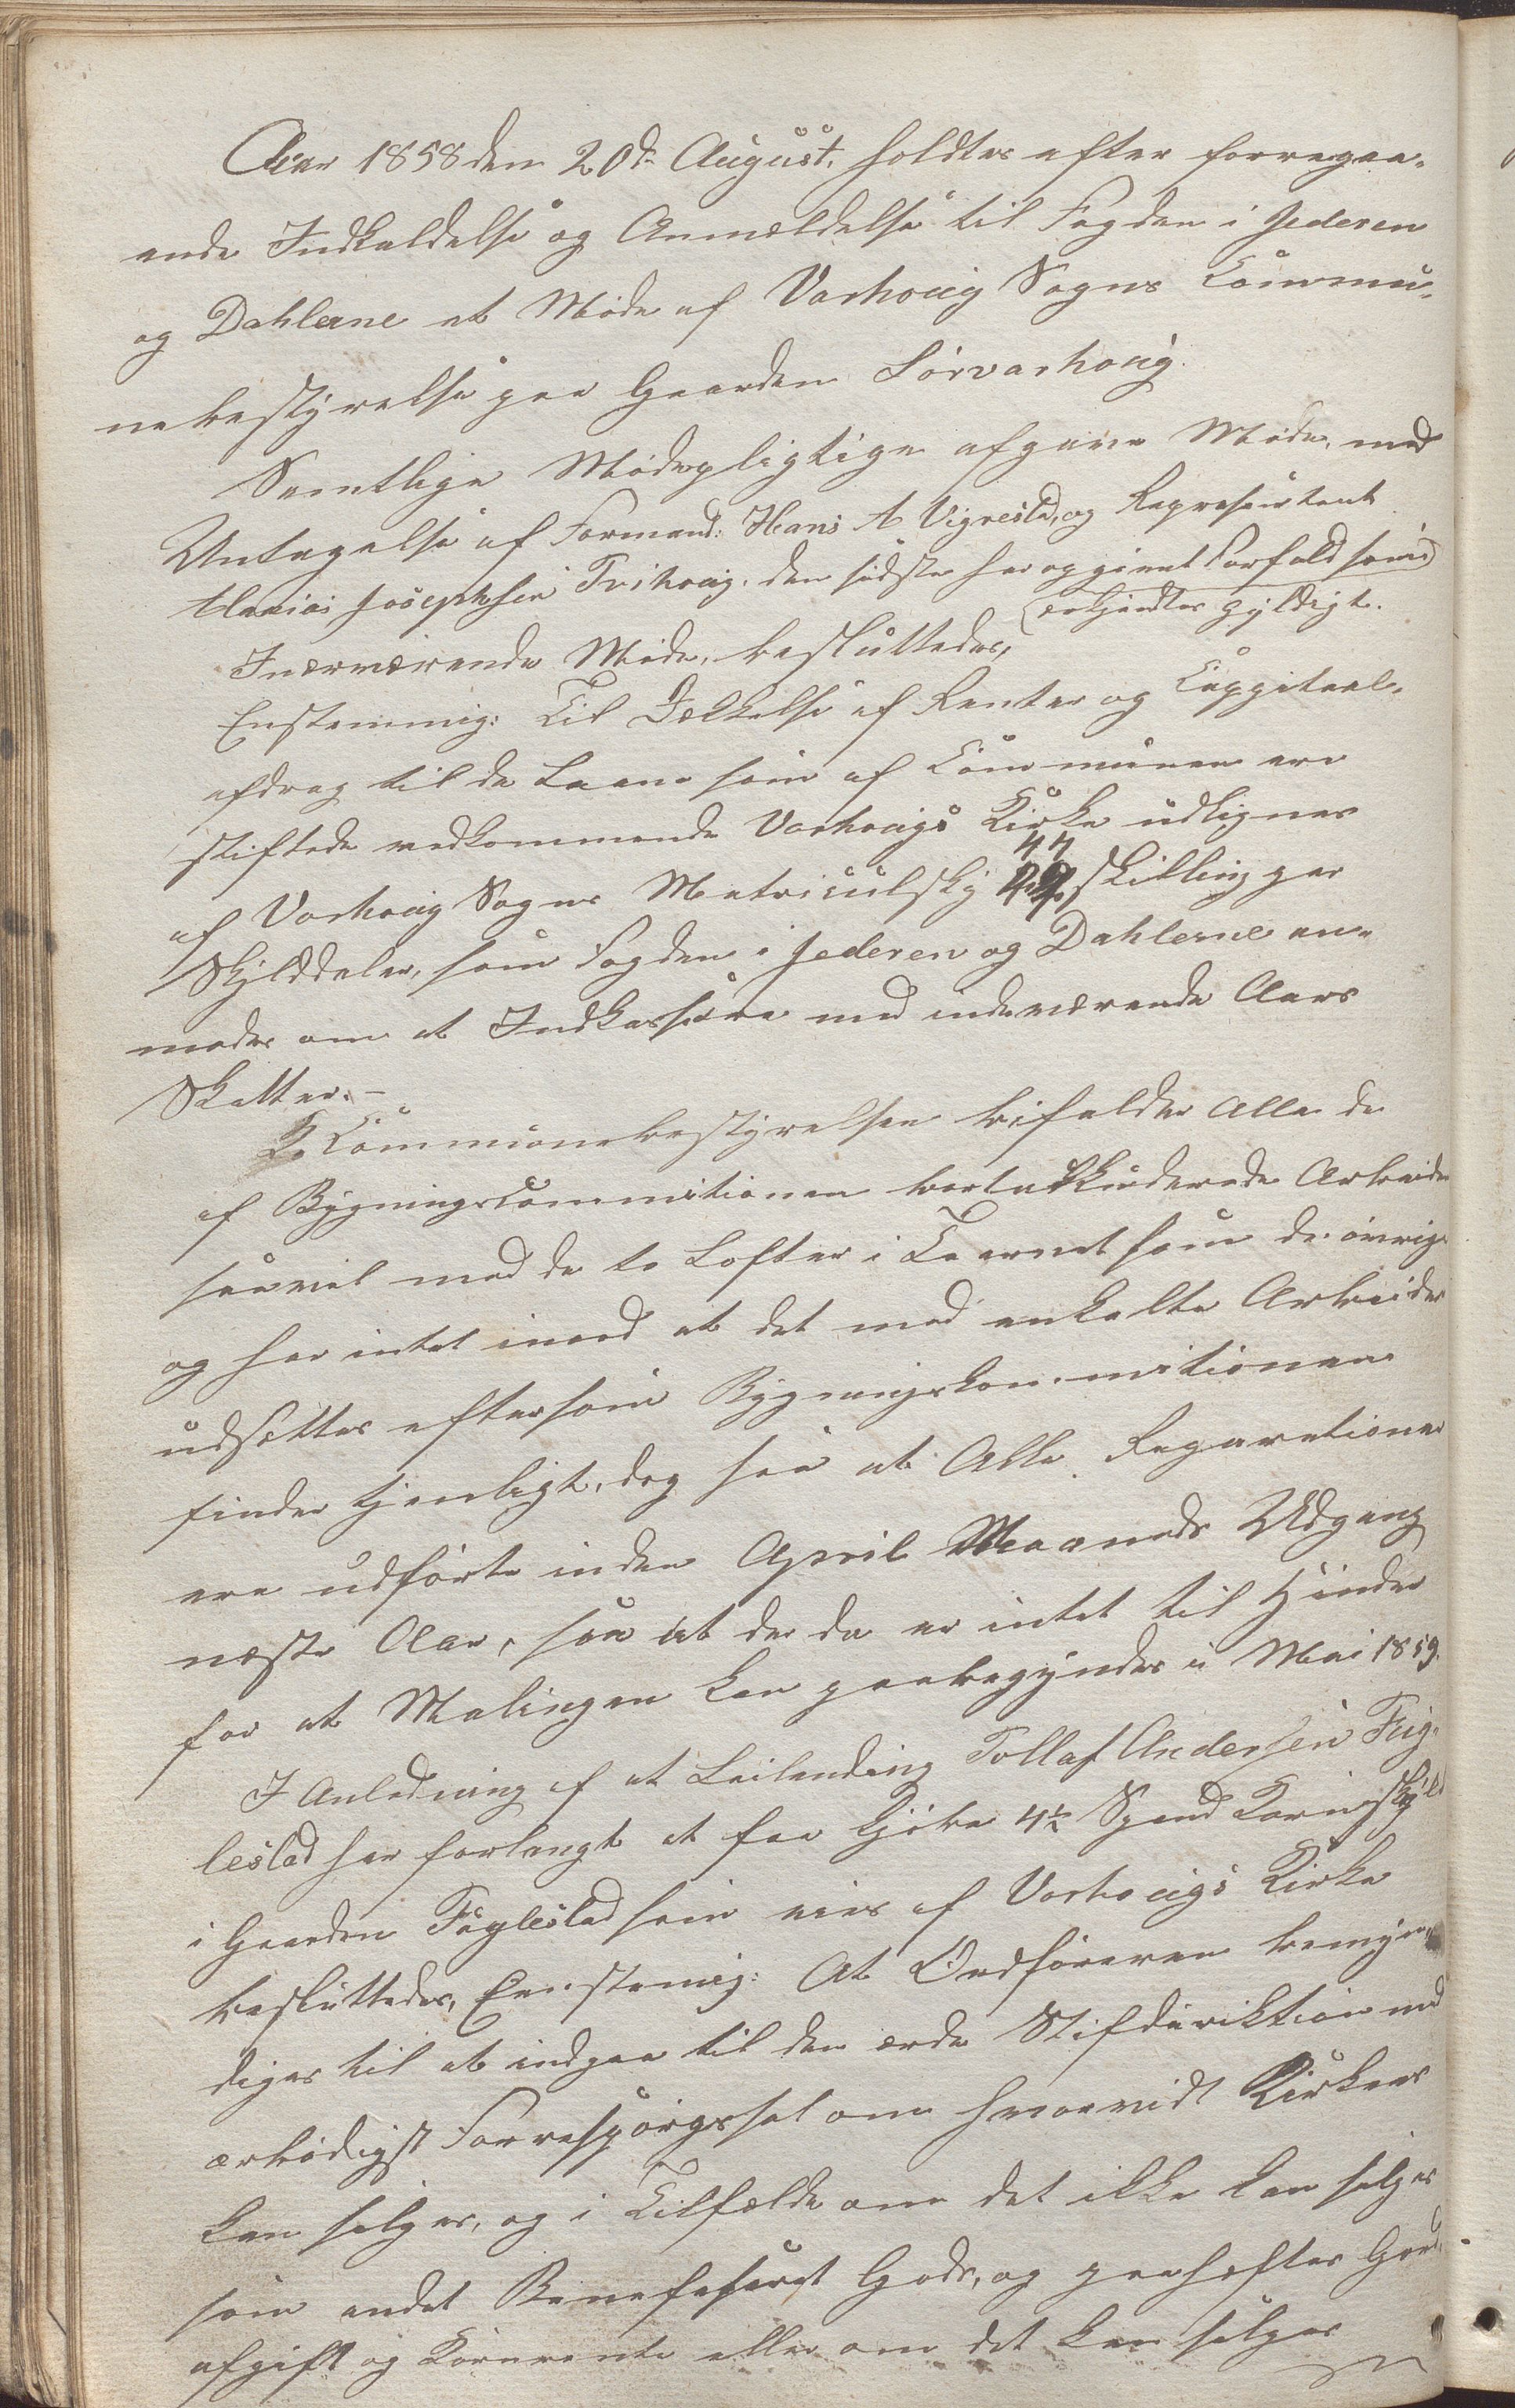 Aar 1858 den 20de August, holdtes efter forregaa-
ende Indkaldelse og Anmeldelse til Fogden i Jederen
og Dahlerne et Møde af Varhoug Sogns Commu-
nebestyrelse paa Gaarden Sørvarhoug.
Samtlige Mødepligtige afgave Møde, med
Untagelse af Formand: Hans A Vigrestad, og Representant
Josephsen Tvihoug. den sidste har opgivet Forfald som
erkjendtes gyldigt.
Inærværende Møde, besluttedes,
Enstemmig: Til Dækkelse af Renter og Cappitaal-
afdrag til de Laan som af Communen ere
stiftede vedkommende Varhougs Kirke udlignes
44
af Varhoug Sogns Matriculsky skilling per
Skylddaler, som Fogden i Jederen og Dahlerne an-
modes om at Indkassere med indeværende Aars
Skatter.-
2. Communebestyrelsen bifalder Alle de
af Bygningscommitionen bortakkorderede Arbeider
saavel med de to Lofter i Taarnet som de øvrige
og har intet imod at det med enkelte Arbeider
udsættes eftersom Bygningskommitionen
finder tjenligt, dog saa at Alle Reparationer
ere udførte inden April Maaneds Udgang
næste Aar, saa at der da er intet til Hinder
for at Malingen kan paabegyndes i Mai 1859.
I Anledning af at Leilending Tollaf Andersen Fug-
lestad har forlangt at faa kjøbe 4½ Spand Kornskyld
i Gaarden Fuglestad som eies af Varhougs Kirke
besluttedes, Eenstemig: At Ordføreren bemyn-
diges til at indgaa til den ærede Stifdiriktion med
ærbødigst Forrespørgssel om hvorvidt Kirkens
kan selges, og i Tilfælde om det ikke kan selges
som andet Beneficeret Gods, og paahæftes Grund
afgift og Kornrente eller om det kan selges